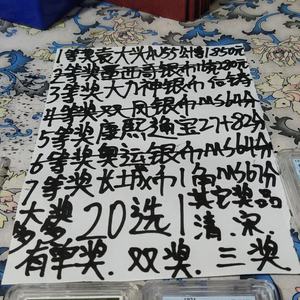 1等奖袁大头AU55分值1850元
2等奖墨西哥银币值280元
3等奖大力神银币
4等奖双凤银币MS64分
5等奖康熙通宝27H82分
6等奖奥运银币MS64分
7等奖长城币1角MS67分
大奖多多 20选1 其它奖品清.宋.
有单奖.双奖.三奖